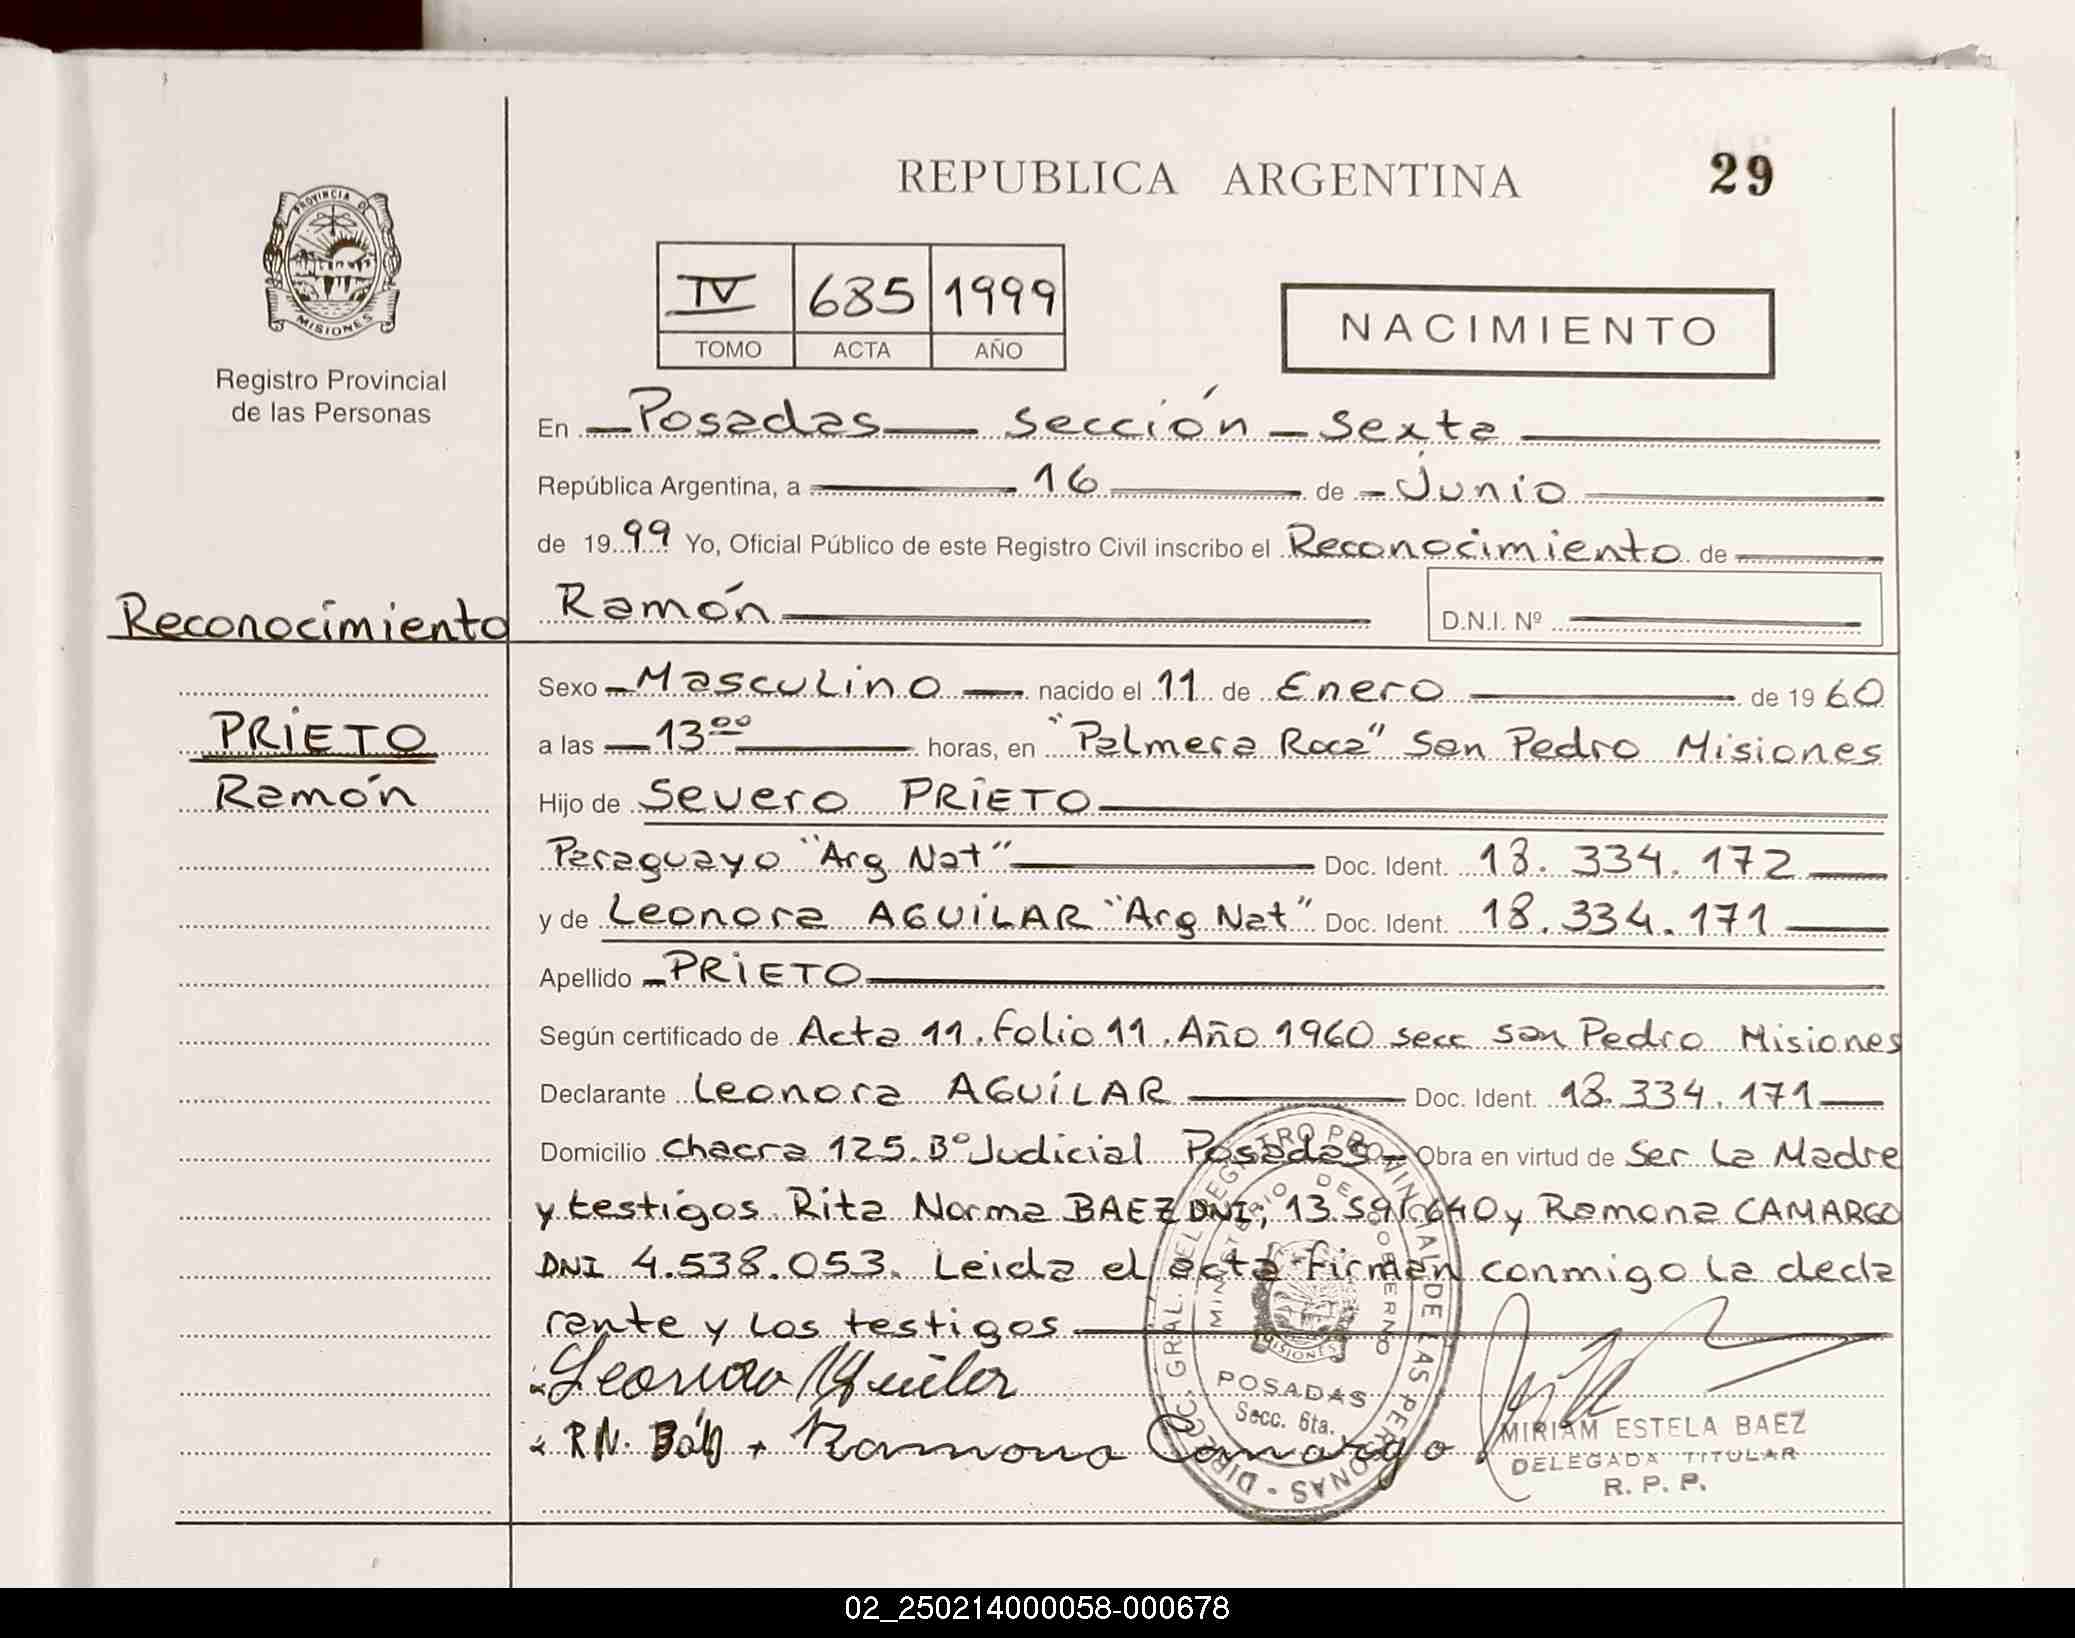 29
REPUBLICA ARGENTINA
PROVINCIA DE
MISIONES
Registro Provincial
de las Personas
IV 685 1999
TOMO ACTA AÑO
NACIMIENTO
En Posadas sección sexta
República Argentina, a 16 de Junio
de 1999 Yo, Oficial Público de este Registro Civil inscribo el Reconocimiento de
Reconocimiento
Ramón D.N.I. Nº
Sexo Masculino nacido el 11 de Enero de 1960
PRIETO
Ramón
a las 13⁰⁰ horas, en "Palmera Roca" San Pedro Misiones
Hijo de Severo PRIETO
Paraguayo "Arg Nat" Doc. Ident. 18.334.172
y de Leonora AGUILAR "Arg Nat" Doc. Ident. 18.334.171
Apellido PRIETO
Según certificado de Acta 11. Folio 11. Año 1960 secc San Pedro Misiones
Declarante Leonora AGUILAR Doc. Ident. 18.334.171
Domicilio Chacra 125. Bº Judicial Posadas Obra en virtud de Ser La Madre
y testigos Rita Norma BAEZ DNI; 13.591.640 y Ramona CAMARGO
DNI 4.538.053. Leida el acta firman conmigo la decla
rante y los testigos
Leonora Aguilar
R.N. Báez Ramona Camargo
DIRECC. GRAL. DEL REGISTRO PROVINCIAL DE LAS PERSONAS
MINISTERIO DE GOBIERNO
MISIONES
POSADAS
Secc. 6ta.
MIRIAM ESTELA BAEZ
DELEGADA TITULAR
R. P. P.
02_250214000058-000678